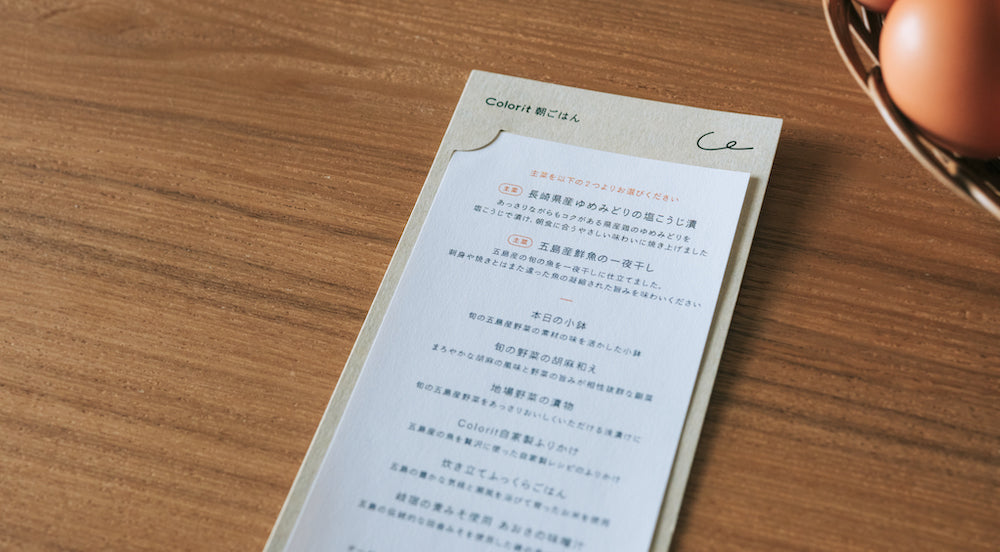 Colorit 朝ごはん
主菜を以下の2つよりお選びください
主菜 長崎県産ゆめみどりの塩こうじ漬
あっさりながらもコクがある県産鶏のゆめみどりを
塩こうじで漬け、朝食に合うやさしい味わいに焼き上げました
主菜 五島産鮮魚の一夜干し
五島産の旬の魚を一夜干しに仕立てました。
刺身や焼きとはまた違った魚の凝縮された旨みを味わいください
本日の小鉢
旬の五島産野菜の素材の味を活かした小鉢
旬の野菜の胡麻和え
まろやかな胡麻の風味と野菜の旨みが相性抜群な副菜
地場野菜の漬物
旬の五島産野菜をあっさりおいしくいただける浅漬けに
Colorit自家製ふりかけ
五島産の魚を贅沢に使った自家製レシピのふりかけ
炊き立てふっくらごはん
五島の豊かな気候と潮風を浴びて育ったお米を使用
岐宿の麦みそ使用 あおさの味噌汁
五島の伝統的な田舎みそを使用した